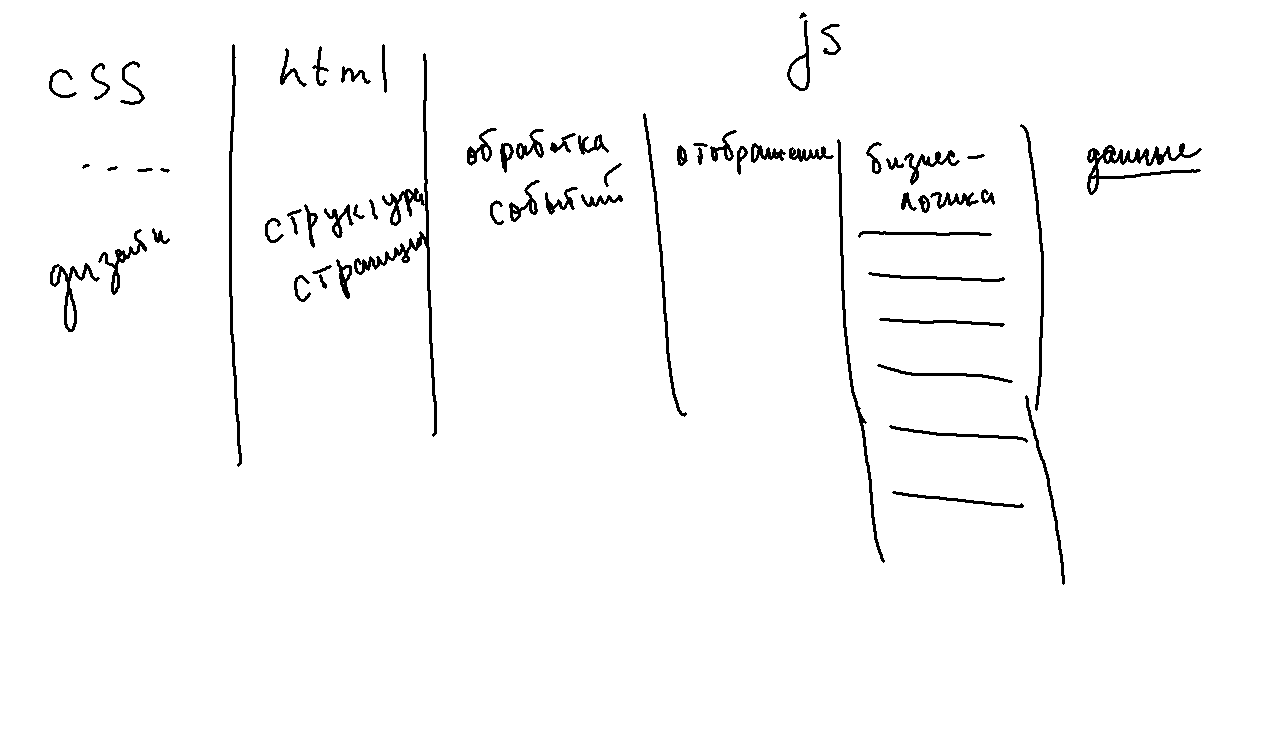 css
дизайн
html
структура
страницы
js
обработка
событий
отображение
бизнес-
логика
данные